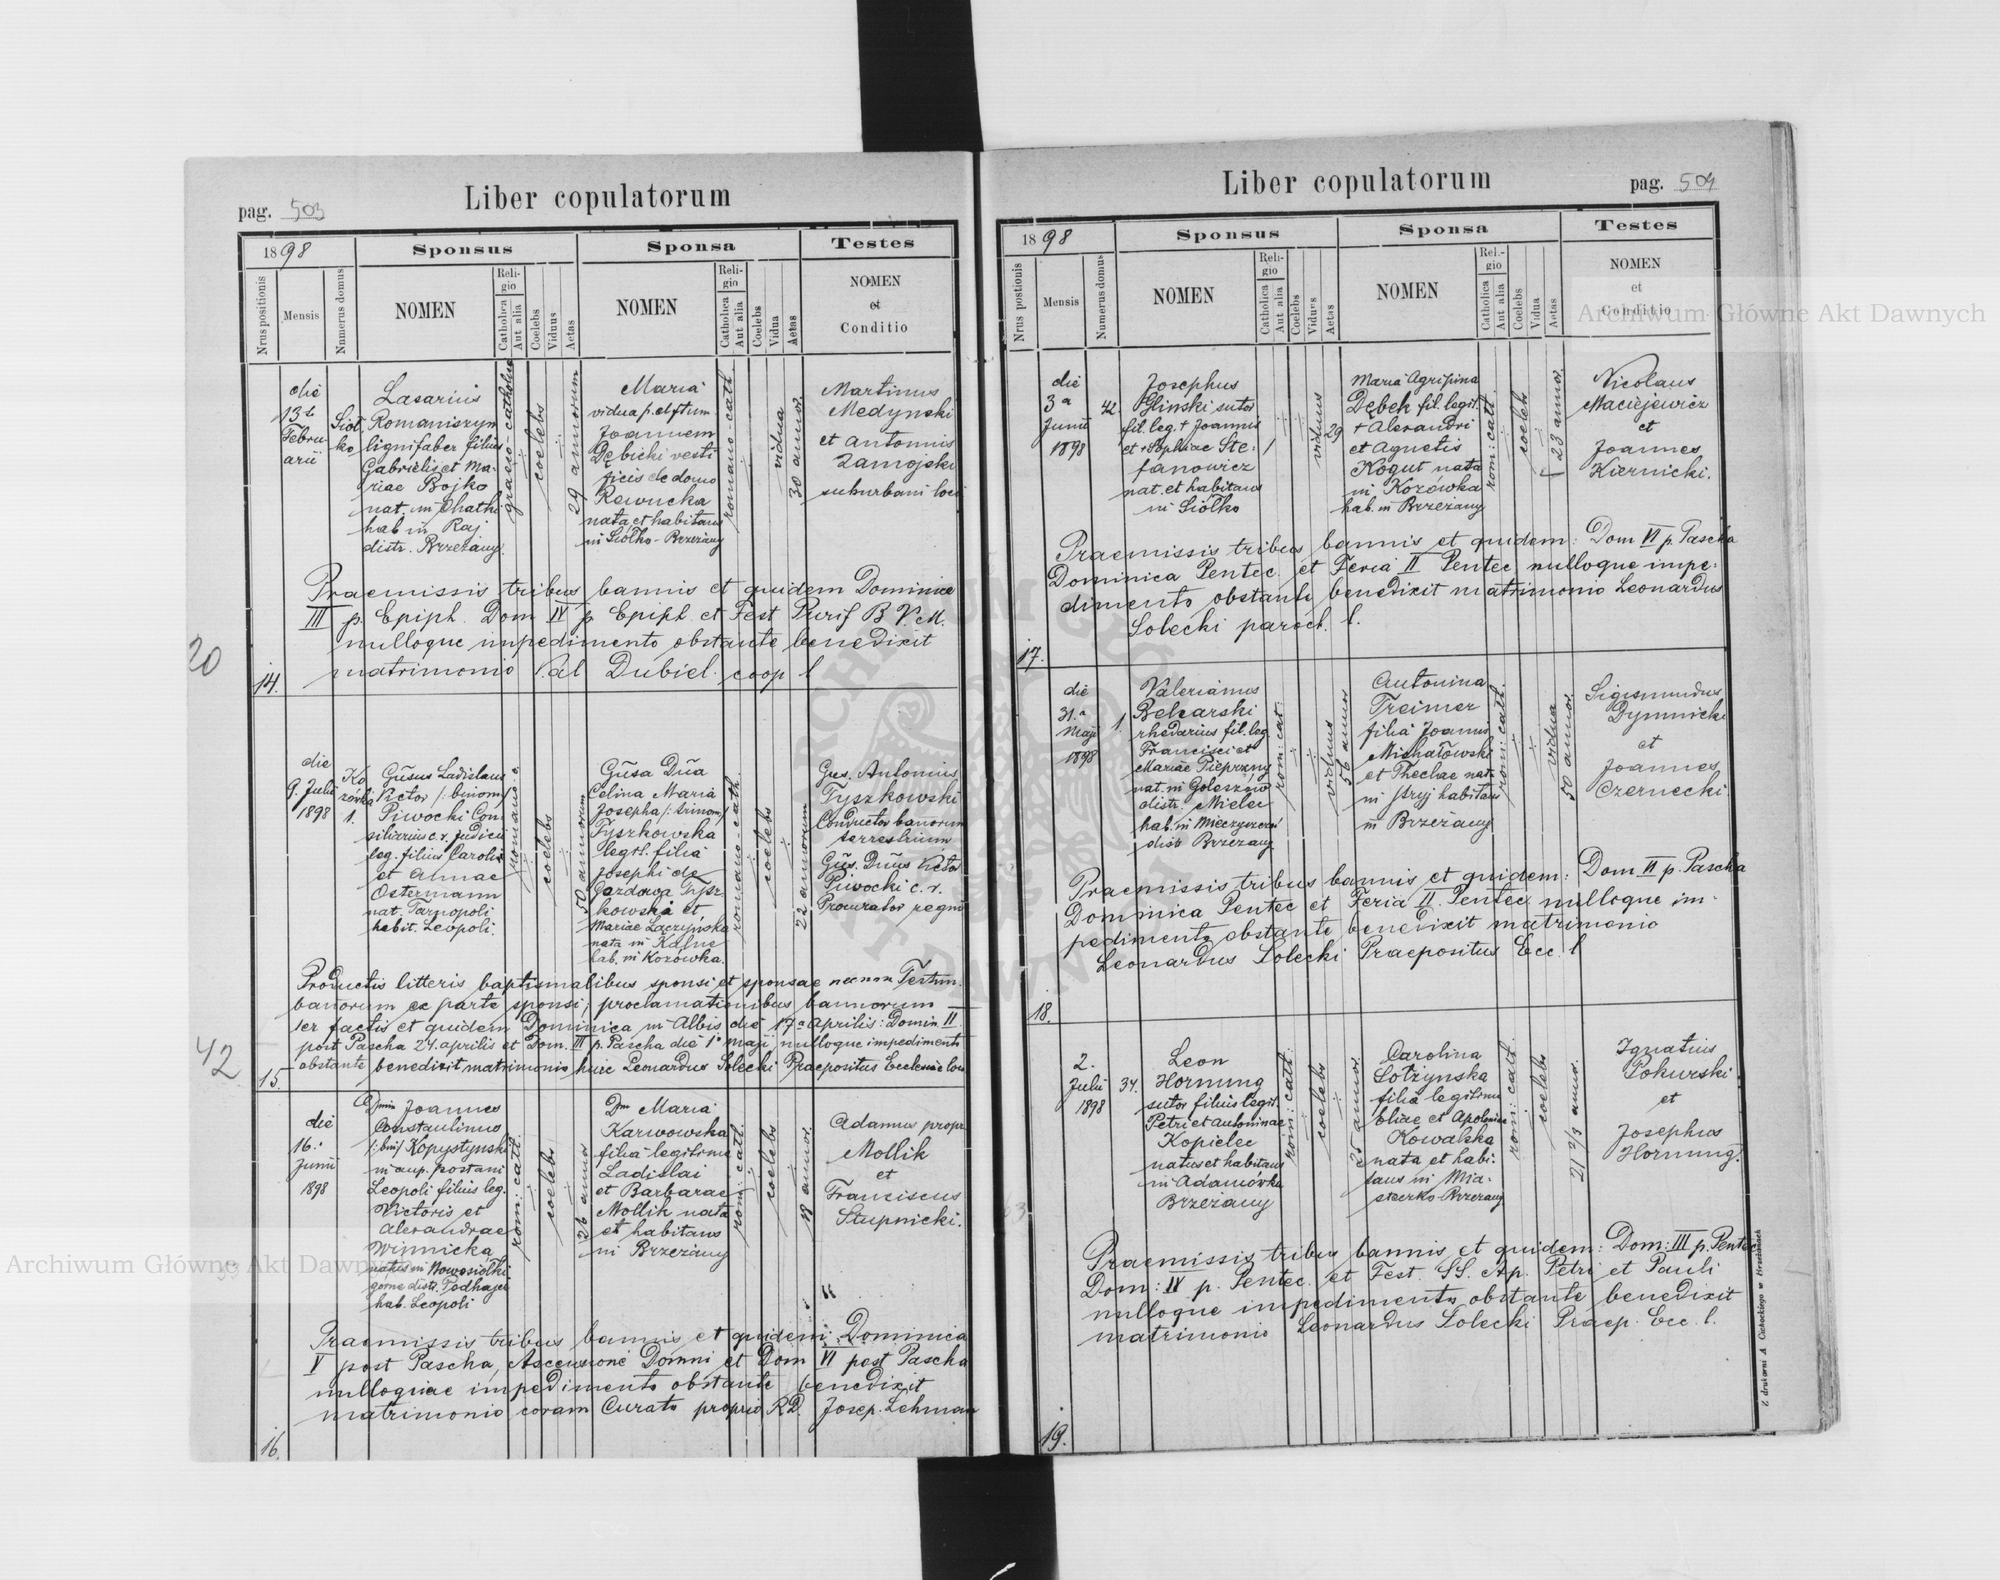 Liber copulatorum
pag. 503
1898
Sponsus
Sponsa
Testes
Nrus positionis
Mensis
Numerus domus
NOMEN
Religio
Catholica
Aut alia
Coelebs
Viduus
Aetas
NOMEN
Religio
Catholica
Aut alia
Coelebs
Vidua
Aetas
NOMEN
et
Conditio
14.
die
13ª
Februarii
Siołko
Lasarius
Romaniszyn
lignifaber filius
Gabrielis et Ma-
riae Bojko
nat. in
hab in Raj
distr. Brzeżany.
graeco-catholica
coelebs
29 annorum
Maria
vidua p. defctum
Joannem
Dębicki vesti
ficis de domo
Rewucka
nata et habitans
in Siółko-Brzeżany
romano-cath.
vidua
30 annor.
Martinus
Medynski
et Antonius
Zamojski
suburbani loci
Praemissis tribus bannis et quidem Dominica
III p. Epiph. Dom IV p Epiph et Fest Purif B V. M.
nulloque impedimento obstante benedixit
matrimonio Val Dubiel. coop l
20
15.
die
9. Julii
1898
Kozówka
1.
Gnsus Ladislaus
Victor /: binom/
Piwocki Con
siliarius c. r. Judicii
leg. filius Caroli
et Almae
Ostermann
nat. Tarnopoli
habit. Leopoli.
romano-c
coelebs
50 annorum
Gnsa Dña
Celina Maria
Josepha /: trinom/
Tyszkowska
legit. filia
Josephi de
Gozdowa Tysz
kowska et
Mariae Łączyńska
nata in Kalne
hab. in Kozówka.
romano-cath.
coelebs
22 annorum
Gns. Antonius
Tyszkowski
Conductor bonorum
terrestrium
Gns. Dñus Victor
Piwocki c. r.
Procurator regni
Productis litteris baptismalibus sponsi et sponsae necnon Testim.
bannorum ex parte sponsi, proclamationibus bannorum
ter factis et quidem Dominica in Albis die 17ª Aprilis: Domin II
post Pascha 24. aprilis et Dom. III p. Pascha die 1ª maji nulloque impedimento
obstante benedixit matrimonio huic Leonardus Solecki Praepositus Ecclesiae loci
42
16.
die
16.ª
Junii
1898
Dnus Joannes
Constantinus
/: bin/ Kopystynski
in aup. postani
Leopoli filius leg.
Victoris et
Alexandrae
Winnicka
natus in Nowosiółki
górne distr. Podhajce
hab. Leopoli
rom: cath.
coelebs
26 annor
Dna Maria
Karwowska
filia legitima
Ladislai
et Barbarae
Mollik nata
et habitans
in Brzeżany
rom: cath.
coelebs
18 annor.
Adamus propr.
Mollik
et
Franciscus
Stupnicki.
Praemissis tribus bannis et quidem: Dominica
V post Pascha, Ascensione Domni et Dom VI post Pascha
nulloquae impedimento obstante benedixit
matrimonio coram Curato proprio R. D. Josep. Lehman
Liber copulatorum
pag. 504
1898
Sponsus
Sponsa
Testes
Nrus postionis
Mensis
Numerus domus
NOMEN
Religio
Catholica
Aut alia
Coelebs
Viduus
Aetas
NOMEN
Religio
Catholica
Aut alia
Coelebs
Vidua
Aetas
NOMEN
et
Conditio
17.
die
3ª
Junii
1898
42.
Josephus
Glinski sutor
fil. leg. + Joannis
et + Sophiae Ste-
fanowicz
nat. et habitans
in Siółko
viduus
29
Maria Agripina
Dębek fil. legit.
+ Alexandri
et Agnetis
Kogut nata
in Kozówka
hab. in Brzeżany
rom: cath.
coeleb
23 annor.
Nicolaus
Maciejewicz
et
Joannes
Kiernicki.
Praemissis tribus bannis et quidem: Dom VI p. Pascha
Dominica Pentec. et Feria II Pentec nulloque impe-
dimento obstante benedixit matrimonio Leonardus
Solecki paroch. l.
18.
die
31.ª
Maji
1898
1.
Valerianus
Bekarski
rhedarius fil. leg
Francisci et
Mariae Pieprzny
nat. in Goleszów
distr. Mielec
hab. in Mieczyszczów
distr Brzeżany
rom: cat.
viduus
56 annor
Antonina
Treimer
filia Joannis
Michałowski
et Theclae nat.
in Stryj habitans
in Brzeżany
rom: cath.
vidua
50 annor.
Sigismundus
Dymnicki
et
Joannes
Czernecki.
Praemissis tribus bannis et quidem: Dom VI p. Pascha
Dominica Pentec et Feria II. Pentec nulloque im-
pedimento obstante benedixit matrimonio
Leonardus Solecki Praepositus Ecc. l
19.
2.
Julii
1898
34.
Leon
Hornung
sutor filius legit.
Petri et Antoninae
Kopielec
natus et habitans
in Adamówka
Brzeżany
rom: cath.
coelebs
25 annor.
Carolina
Łotzynska
filia legitima
Eliae et Apoloniae
Kowalska
nata et habi-
tans in Mia-
steczko-Brzeżany
rom: cath.
coelebs
21 2/3 annor.
Ignatius
Pokurski
et
Josephus
Hornung.
Praemissis tribus bannis et quidem: Dom: III p. Pentec
Dom: IV p. Pentec. et Fest. SS. Ap. Petri et Pauli
nulloque impedimento obstante benedixit
matrimonio Leonardus Solecki Praep. Ecc. l.
Z drukarni A Cichockiego w Brzeżanach
Archiwum Główne Akt Dawnych
Archiwum Główne Akt Dawnych